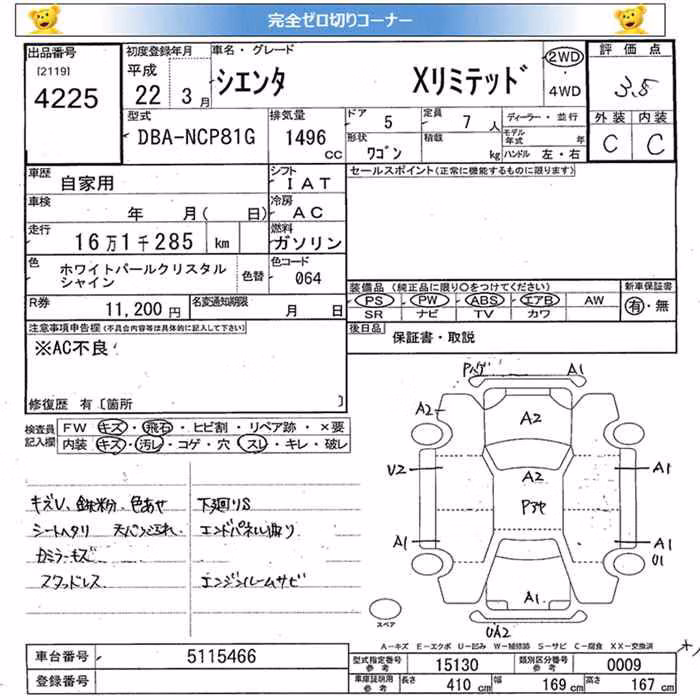 完全ゼロ切りコーナー
出品番号
[2119]
4225
初度登録年月
平成
22 3月
車名・グレード
シエンタ Xリミテッド
2WD
4WD
評価点
3.5
外装 内装
C C
型式
DBA-NCP81G
排気量
1496
CC
ドア
5
定員
7 人
形状
ワゴン
積載
kg
ディーラー・並行
モデル年式 年
ハンドル 左・右
車歴
自家用
シフト
IAT
車検
年 月( 日)
冷房
AC
走行
16万1千285 km
燃料
ガソリン
色
ホワイトパールクリスタル
シャイン
色替
色コード
064
R券
11,200円
名変通知期限
月 日
セールスポイント(正常に機能するものに限ります)
装備品 (純正品に限り○をつけてください)
PS PW ABS エアB AW
SR ナビ TV カワ
新車保証書
有・無
後日品
保証書・取説
注意事項申告欄(不具合内容等は具体的に記入して下さい)
※AC不良
修復歴 有〔箇所 〕
検査員
記入欄
FW キズ・飛石・ヒビ割・リペア跡・×要
内装 キズ・汚レ・コゲ・穴・スレ・キレ・破レ
キズU、鉄粉、色あせ
シートヘタリ 天バン汚れ
カミラーキズ
スタッドレス
下廻りS
エンドパネル曲り
エンジンルームサビ
Pハゲ A1
A2
A2
U2
A2
Pヌケ
A1
A1
A1
U1
A1
UA2
スペア
A-キズ E-エクボ U-凹み W-補修跡 S-サビ C-腐食 XX-交換済
車台番号
5115466
登録番号
型式指定番号
参考
15130
類別区分番号
参考
0009
車庫証明用
参考
長さ
410 cm
幅
169 cm
高さ
167 cm